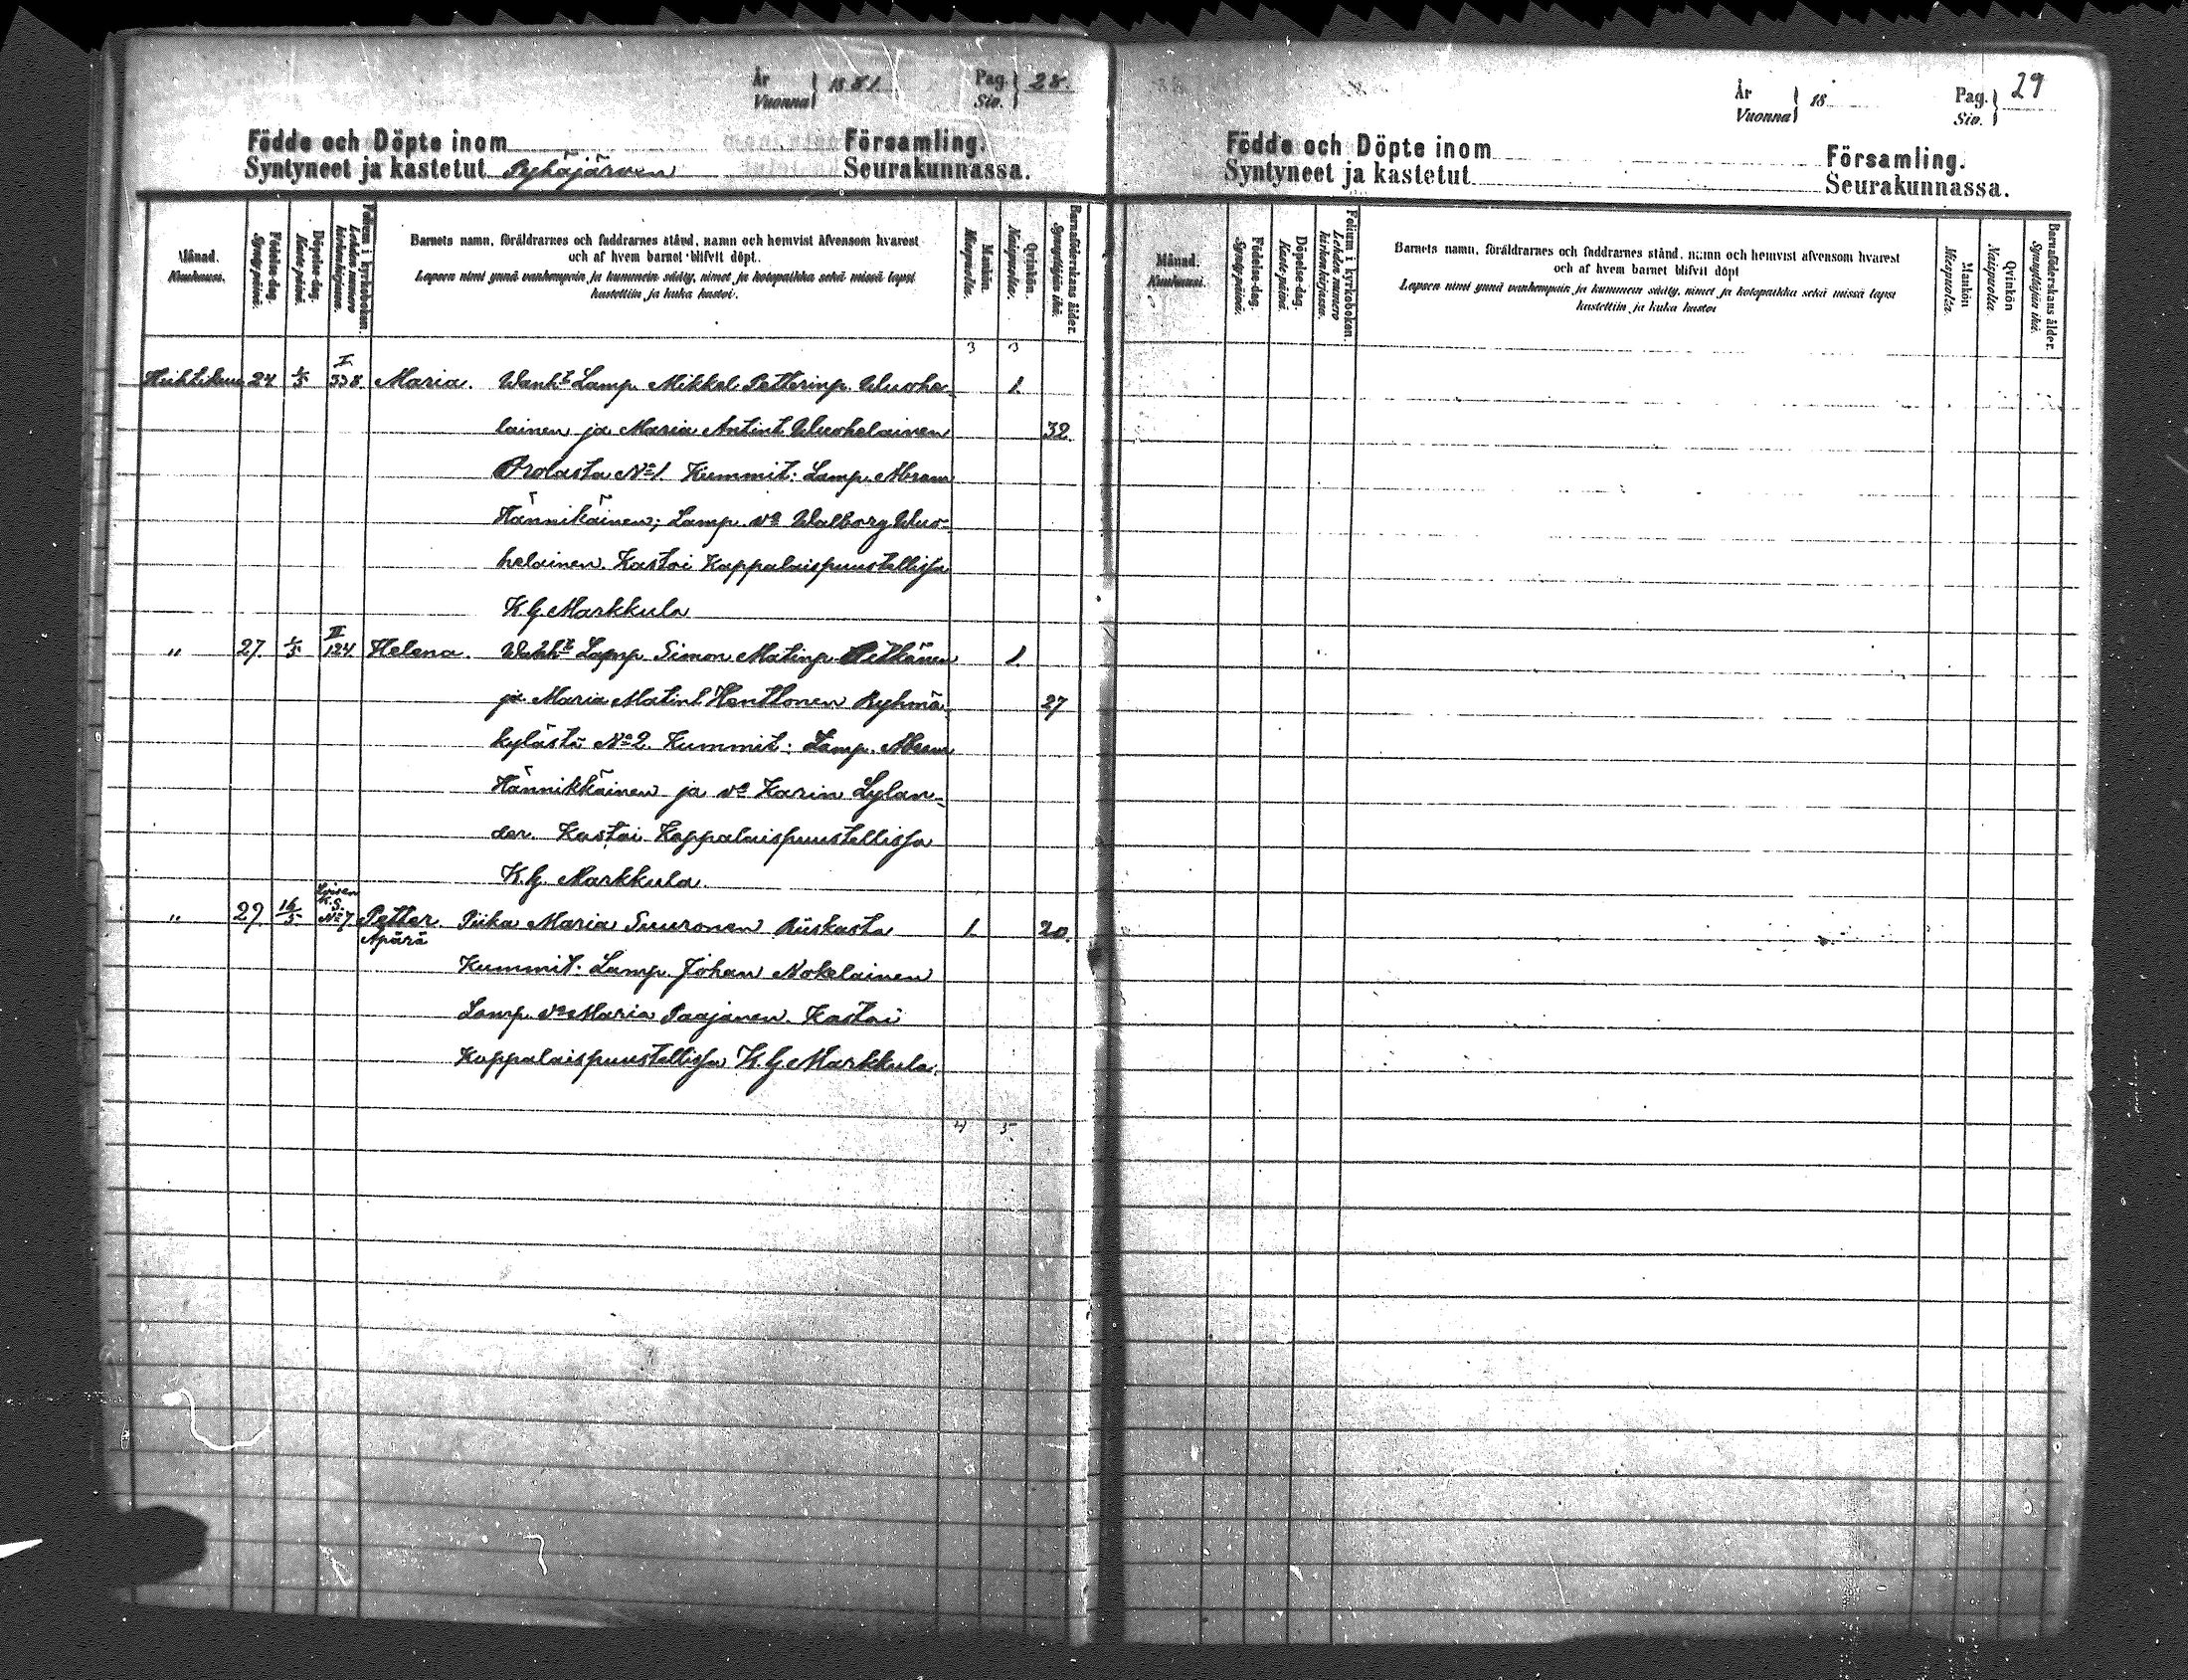 År Vuonna 1881 Pag. Siv. 28.
Födde och Döpte inom Församling.
Syntyneet ja kastetut Pyhäjärwen Seurakunnassa.
Månad. Kuukausi.
Födelse-dag. Syntypäivä.
Döpelse-dag. Kaste-päivä.
Folium i kyrkoboken. Lehden numero kirkonkirjassa.
Barnets namn, föräldrarnes och faddrarnes stånd, namn och hemvist äfvensom hvarest
och af hvem barnet blifvit döpt.
Lapsen nimi ynnä vanhempain ja kummein sääty, nimet ja kotopaikka sekä missä lapsi
kastettiin ja kuka kastoi.
Mankön. Miespuolia.
Qvinkön. Naispuolia.
Barnaföderskans ålder. Synnyttäjän ikä.
3 3
Huhtikuu 24 1/5 I 338. Maria. Wanht Lamp. Mikkel Petterinp. Wuohe- 1.
lainen ja Maria Antint. Wuohelainen 32.
Orolasta No 1. Kummit: Lamp. Abram
Hännikäinen; Lamp. vo Walborg Wuo-
helainen. Kastoi Kappalaispuustellissa
K. G. Markkula
" 27. 1/5 II 124 Helena. Wanht Lamp. Simon Matinp. Pitkänen 1.
ja Maria Matint. Henttonen Ryhmä- 27
kylästä No 2. Kummit: Lamp. Abram
Hännikkäinen ja vo Karin Lylan-
der. Kastoi Kappalaispuustellissa
K. G. Markkula.
" 29. 16/5 Loisen K.S. No 7. Petter. Piika Maria Suuronen Riiskasta 1. 20.
Äpärä
Kummit: Lamp. Johan Nokelainen
Lamp. vo Maria Paajanen. Kastoi
Kappalaispuustellissa K. G. Markkula.
4 5
År Vuonna 18 Pag. Siv. 29
Födde och Döpte inom Församling.
Syntyneet ja kastetut Seurakunnassa.
Månad. Kuukausi.
Födelse-dag. Syntypäivä.
Döpelse-dag. Kaste-päivä.
Folium i kyrkoboken. Lehden numero kirkonkirjassa.
Barnets namn, föräldrarnes och faddrarnes stånd, namn och hemvist äfvensom hvarest
och af hvem barnet blifvit döpt
Lapsen nimi ynnä vanhempain ja kummein sääty, nimet ja kotopaikka sekä missä lapsi
kastettiin ja kuka kastoi
Mankön Miespuolia.
Qvinkön Naispuolia.
Barnaföderskans ålder. Synnyttäjän ikä.